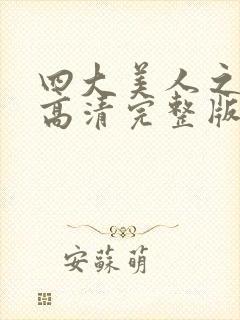 四大美人之
高清完整版
安蘇萌